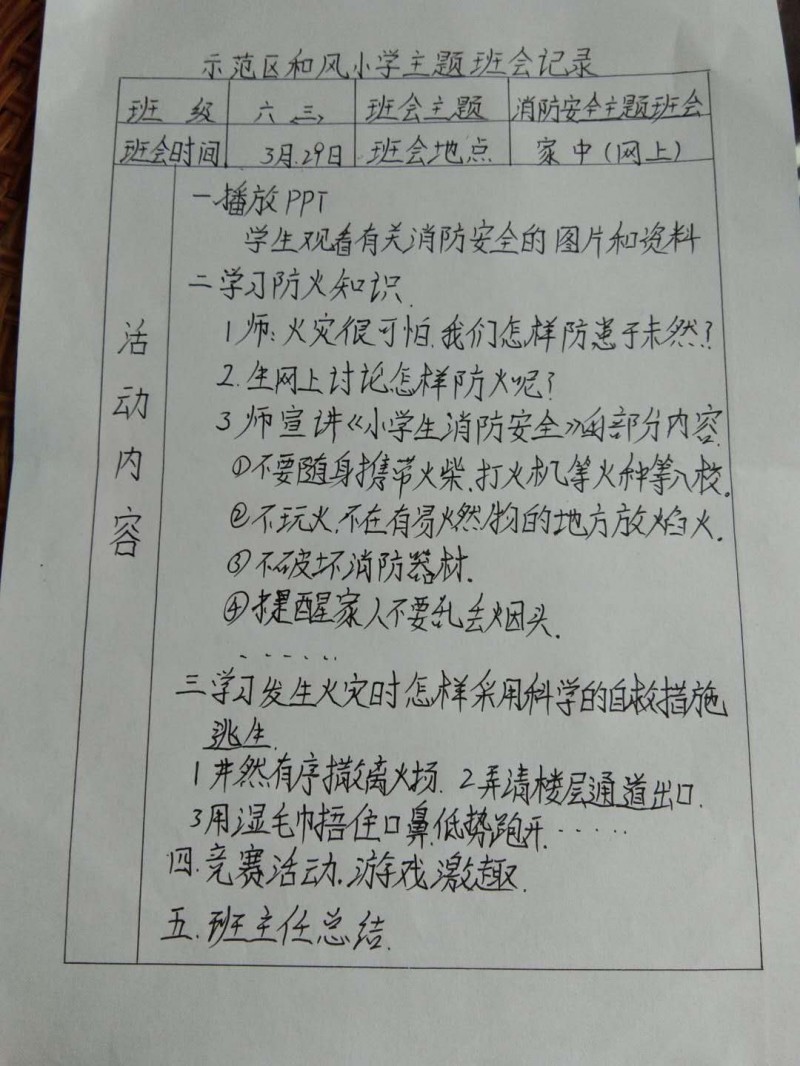 示范区和风小学主题班会记录
班 级 六〈三〉 班会主题 消防安全主题班会
班会时间 3月.29日 班会地点 家中(网上)
活动内容
一播放PPT
学生观看有关消防安全的图片和资料
二学习防火知识.
1师:火灾很可怕.我们怎样防患于未然?
2.生网上讨论怎样防火呢?
3师宣讲《小学生消防安全》的部分内容.
①不要随身携带火柴.打火机等火种等入校.
②不玩火.不在有易燃物的地方放焰火.
③不破坏消防器材.
④提醒家人不要乱丢烟头.
......
三学习发生火灾时怎样采用科学的自救措施
逃生.
1井然有序撤离火场. 2弄清楼层通道出口.
3用湿毛巾捂住口鼻.低势跑开......
四.竞赛活动.游戏激趣.
五.班主任总结.